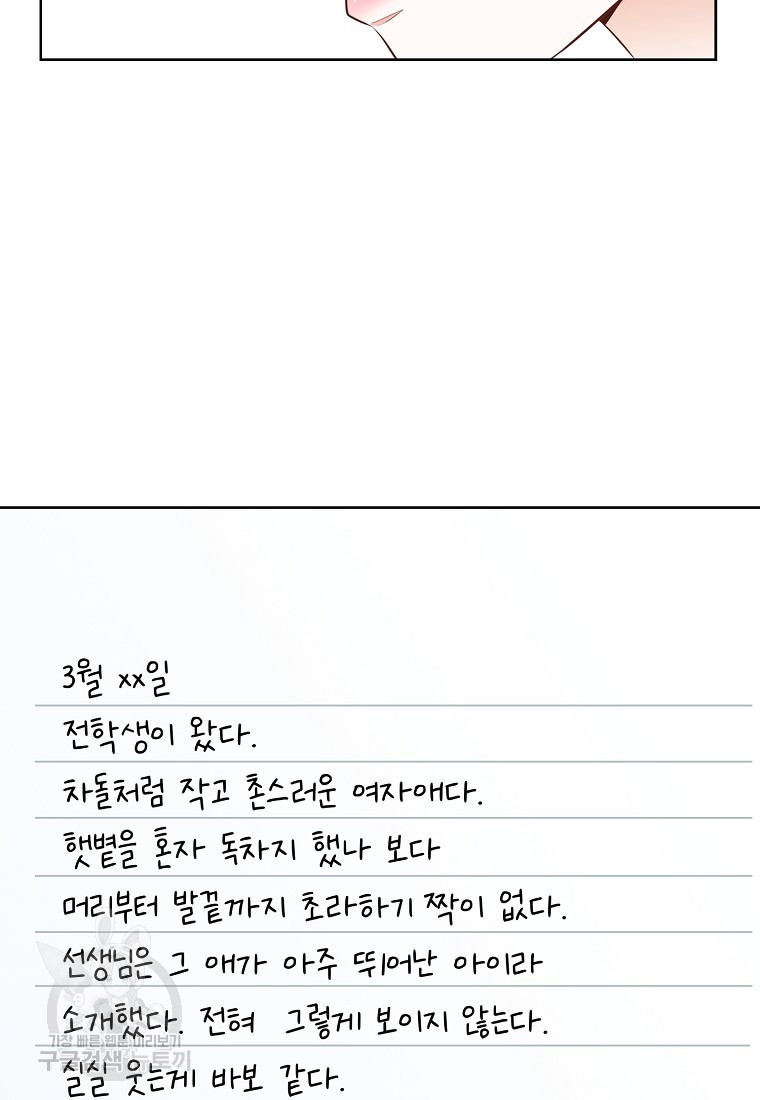 3월 xx일
전학생이 왔다.
차돌처럼 작고 촌스러운 여자애다.
햇볕을 혼자 독차지 했나 보다
머리부터 발끝까지 초라하기 짝이 없다.
선생님은 그 애가 아주 뛰어난 아이라
소개했다. 전혀 그렇게 보이지 않는다.
가장 빠른 웹툰 미리보기
구글검색 뉴토끼
실실 웃는게 바보 같다.